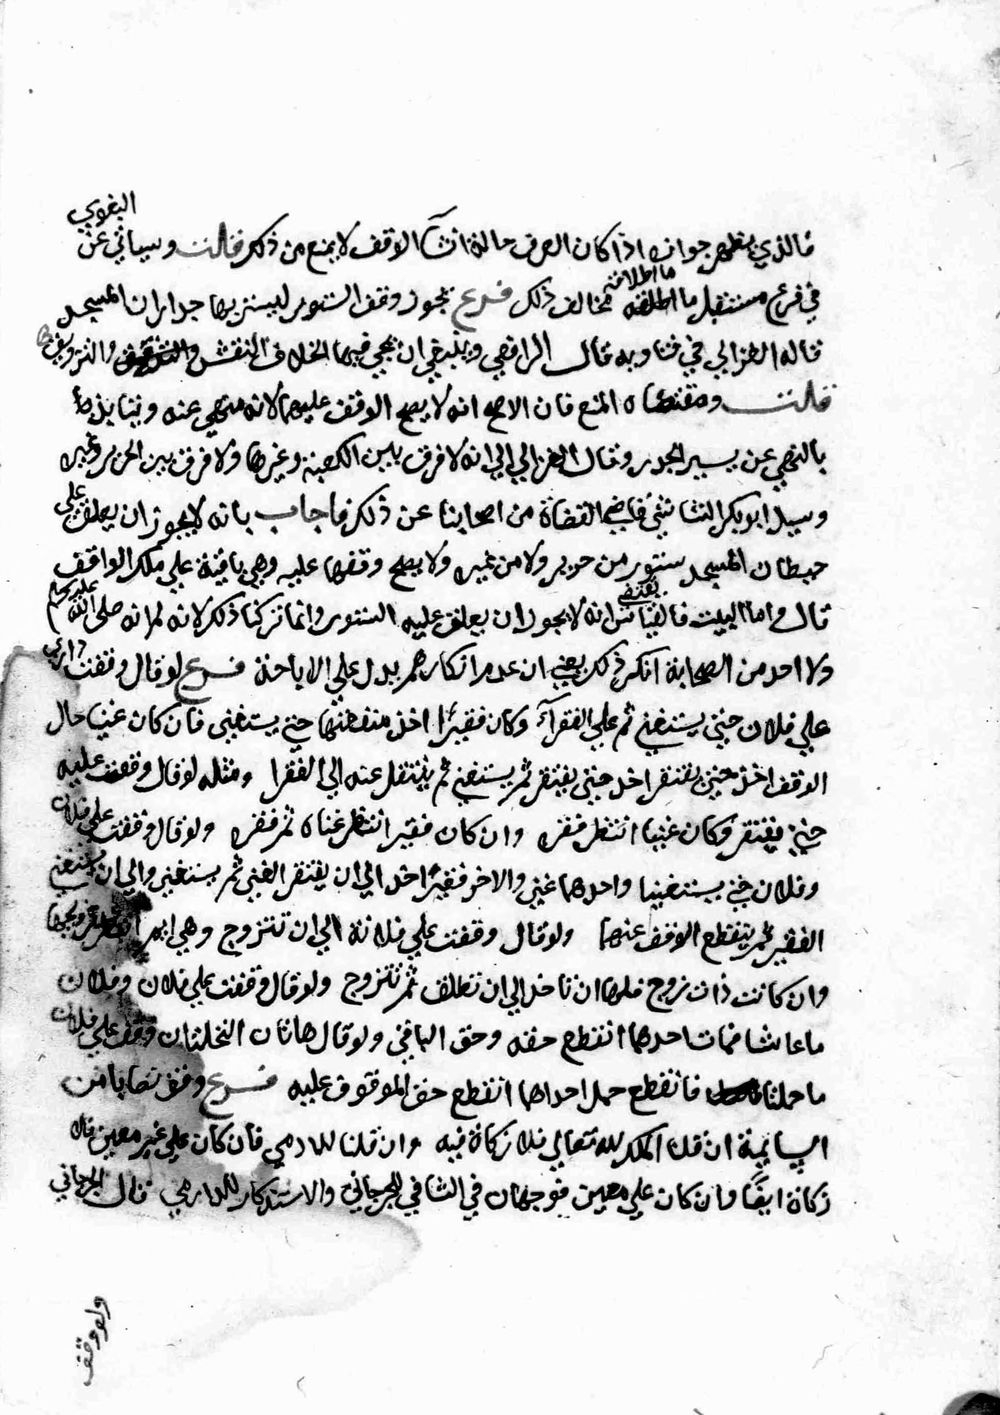 فالذي يظهر جوازه اذا كان العرف حالة انشآ الوقف لا يمنع من ذلك قلت وسياتي عن البغوي
في فرع مستقل ما اطلاقه يخالف ذلك فرع يجوز وقف الستور ليستر بها جدار ان المسجد
قاله الغزالي في فتاويه قال الرافعي وينبغي ان يجي فيها الخلاف النقش والتزويق
قلت ومقتضاه المنع فان الاصح انه لا يصح الوقف عليهما لانه منهي عنه ويتايد
بالنهي عن يستر الجدر وقال الغزالي الي انه لا فرق بين الكعبة وغيرها ولا فرق بين الحرير وغيره
وسيل ابو بكر الشاشي قاضي القضاة من اصحابنا عن ذلك فاجاب بانه لا يجوز ان يعلق علي
حيطان المسجد ستور من حرير ولا من غيره ولا يصح وقفها عليه وهي باقية علي ملك الواقف
قال واما البيت فالقياس يقتضي انه لا يجوز ان يعلق عليه الستور وانما تركنا ذلك لانه لم انه صلى الله عليه وسلم
ولا احد من الصحابة انكر ذلك يعني ان عدم انكارهم يدل علي الاباحة فرع لو قال وقفت داري
علي فلان حتي يستغني ثم علي الفقرآ وكان فقيرا اخذ منفعتها حتي يستغني فان كان غنيا حال
الوقف اخذ حين يفتقر اخذ حتي يفتقر ثم يستغني ثم ينتقل عنه الي الفقرا ومثله لو قال وقفت عليه
حتي يفتقر وكان غنيا انتظر فقره وان كان فقيرا انتظر غناه ثم فقره ولو قال وقفت علي فلان
وفلان حتي يستغنيا واحدهما غني والاخر فقير اخذ الي ان يفتقر الغني ثم يستغني والي ان يستغني
الفقير ثم ينقطع الوقف عنهما ولو قال وقفت علي فلانة الي ان تتزوج وهي ايم
وان كانت ذات زوج فلها ان تاخذ الي ان تطلق ثم تتزوج ولو قال وقفت علي فلان وفلان
ما عاشا فمات احدهما انقطع حقه وحق الباقي ولو قال هاتان النخلتان وقف علي فلان
ما حملتا فانقطع حمل احداهما انقطع حق الموقوف عليه فرع وقف نصابا من
السايمة ان قلنا الملك لله تعالي فلا زكاة فيه وان قلنا للادمي فان كان علي غير معين فلا
زكاة ايضا وان كان علي معين فوجهان في الشافي للجرجاني والاستذكار للدارمي قال الجرجاني
ولو وقف